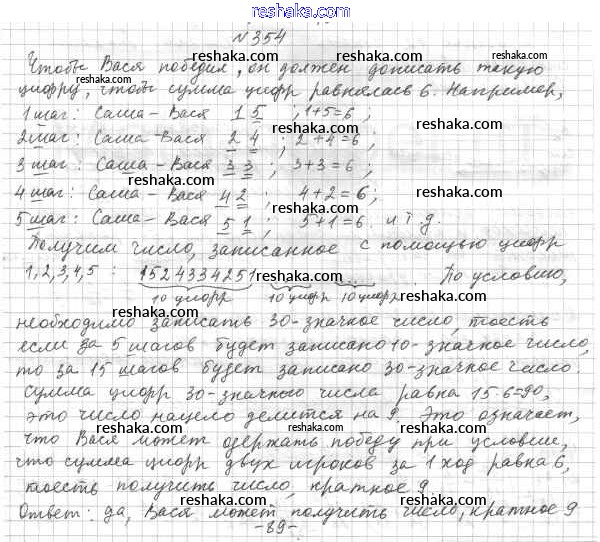 reshaka.com
№354
Чтобы Вася победил, он должен дописать такую reshaka.com
цифру, чтобы сумма цифр равнялась 6. Например, reshaka.com
1 шаг: Саша - Вася 1 5 ; 1+5=6 ; reshaka.com reshaka.com
2 шаг: Саша - Вася 2 4 ; 2+4=6 ; reshaka.com
3 шаг: Саша - Вася 3 3 ; 3+3=6 ; reshaka.com
4 шаг: Саша - Вася 4 2 ; 4+2=6 ; reshaka.com
5 шаг: Саша - Вася 5 1 ; 5+1=6. и т.д. reshaka.com
Получим число, записанное с помощью цифр reshaka.com
1,2,3,4,5 : 1524334251 ... По условию, reshaka.com
10 цифр 10 цифр 10 цифр reshaka.com
необходимо записать 30-значное число, тоесть reshaka.com
если за 5 шагов будет записано 10-значное число, reshaka.com
то за 15 шагов будет записано 30-значное число. reshaka.com
Сумма цифр 30-значного числа равна 15·6=90, reshaka.com
это число нацело делится на 9. Это означает, reshaka.com
что Вася может одержать победу при условии, reshaka.com
что сумма цифр двух игроков за 1 ход равна 6, reshaka.com
тоесть получить число, кратное 9. reshaka.com
Ответ: да, Вася может получить число, кратное 9 reshaka.com
-89- reshaka.com